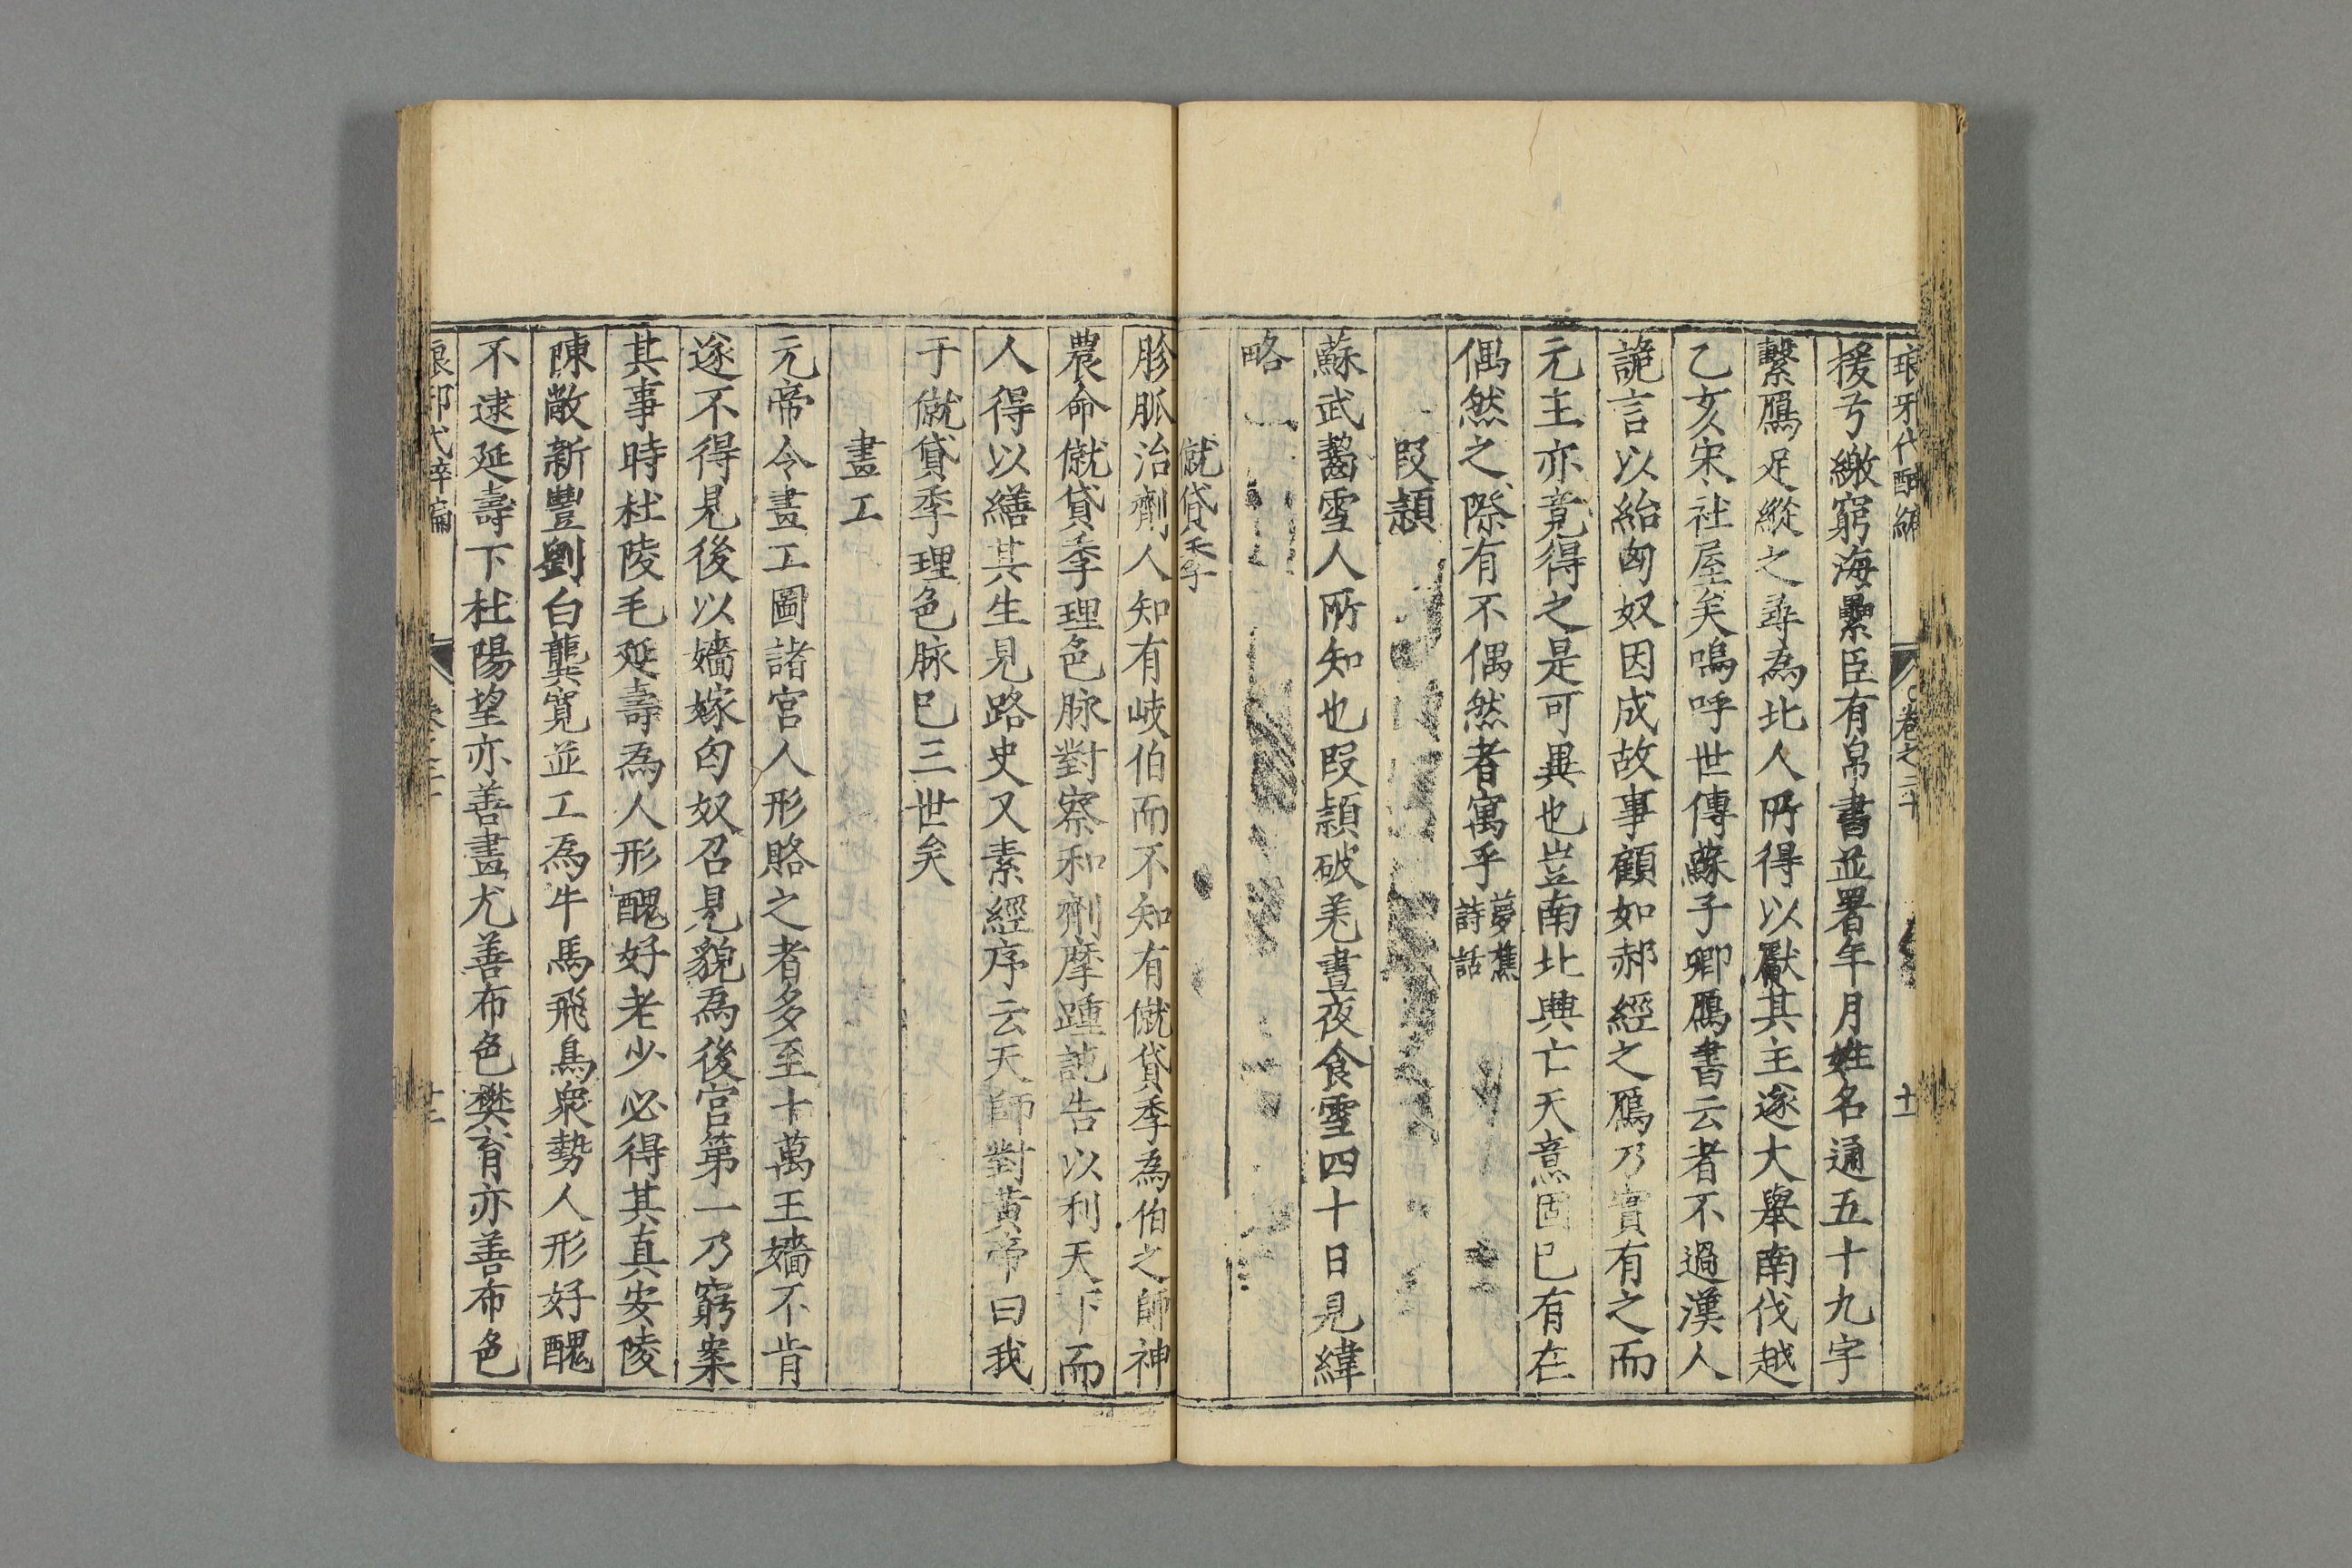 琅牙代醉編 卷之二十 十一
援弓繳窮海纍臣有帛書並署年月姓名通五十九字
繫鴈足縱之尋為北人所得以獻其主遂大舉南伐越
乙亥宋社屋矣嗚呼世傳蘇子卿鴈書云者不過漢人
詭言以紿匈奴因成故事顧如郝經之鴈乃實有之而
元主亦竟得之是可異也豈南北興亡天意固已有在
偶然之際有不偶然者寓乎夢蕉詩話
段熲
蘇武齧雪人所知也段熲破羌晝夜食雪四十日見緯
略
僦貸季
胗脈治劑人知有岐伯而不知有僦貸季為伯之師神
農命僦貸季理色脉對察和劑摩踵訰告以利天下而
人得以繕其生見路史又素經序云天師對黃帝曰我
于僦貸季理色脉已三世矣
畫工
元帝令畫工圖諸宮人形賂之者多至十萬王嬙不肯
遂不得見後以嬙嫁匈奴召見貌為後宮第一乃窮案
其事時杜陵毛延壽為人形醜好老少必得其真安陵
陳敞新豐劉白龔寬並工為牛馬飛鳥衆勢人形好醜
不逮延壽下杜陽望亦善畫尤善布色樊育亦善布色